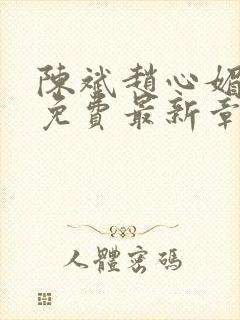 陳斌趙心媚
免費最新章
人體密碼